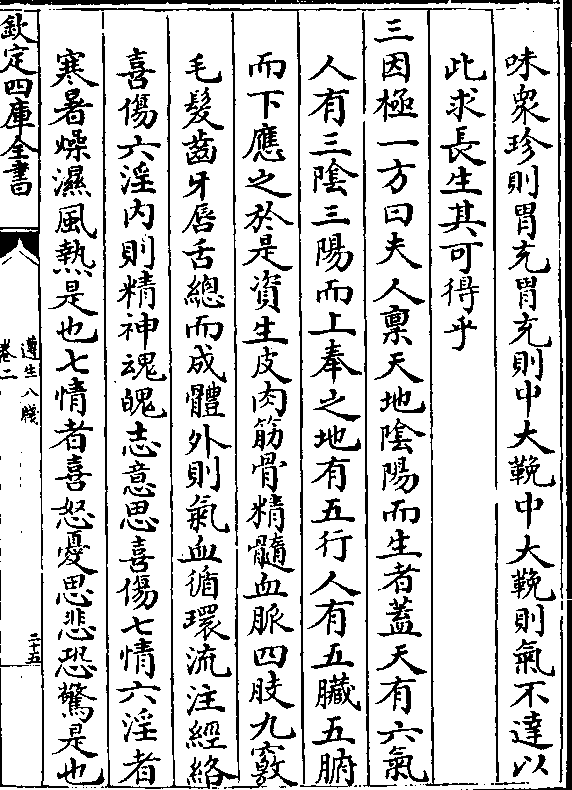 味衆珍則胃充胃充則中大鞔中大鞔則氣不達以
此求長生其可得乎
三因極一方曰夫人禀天地陰陽而生者蓋天有六氣
人有三陰三陽而上奉之地有五行人有五臟五腑
而下應之於是資生皮肉筋骨精髓血脈四肢九竅
毛髮齒牙唇舌總而成體外則氣血循環流注經絡
喜傷六淫内則精神魂魄志意思喜傷七情六淫者
寒暑燥濕風熱是也七情者喜怒憂思悲恐驚是也
欽定四庫全書
遵生八牋
卷二
二十五